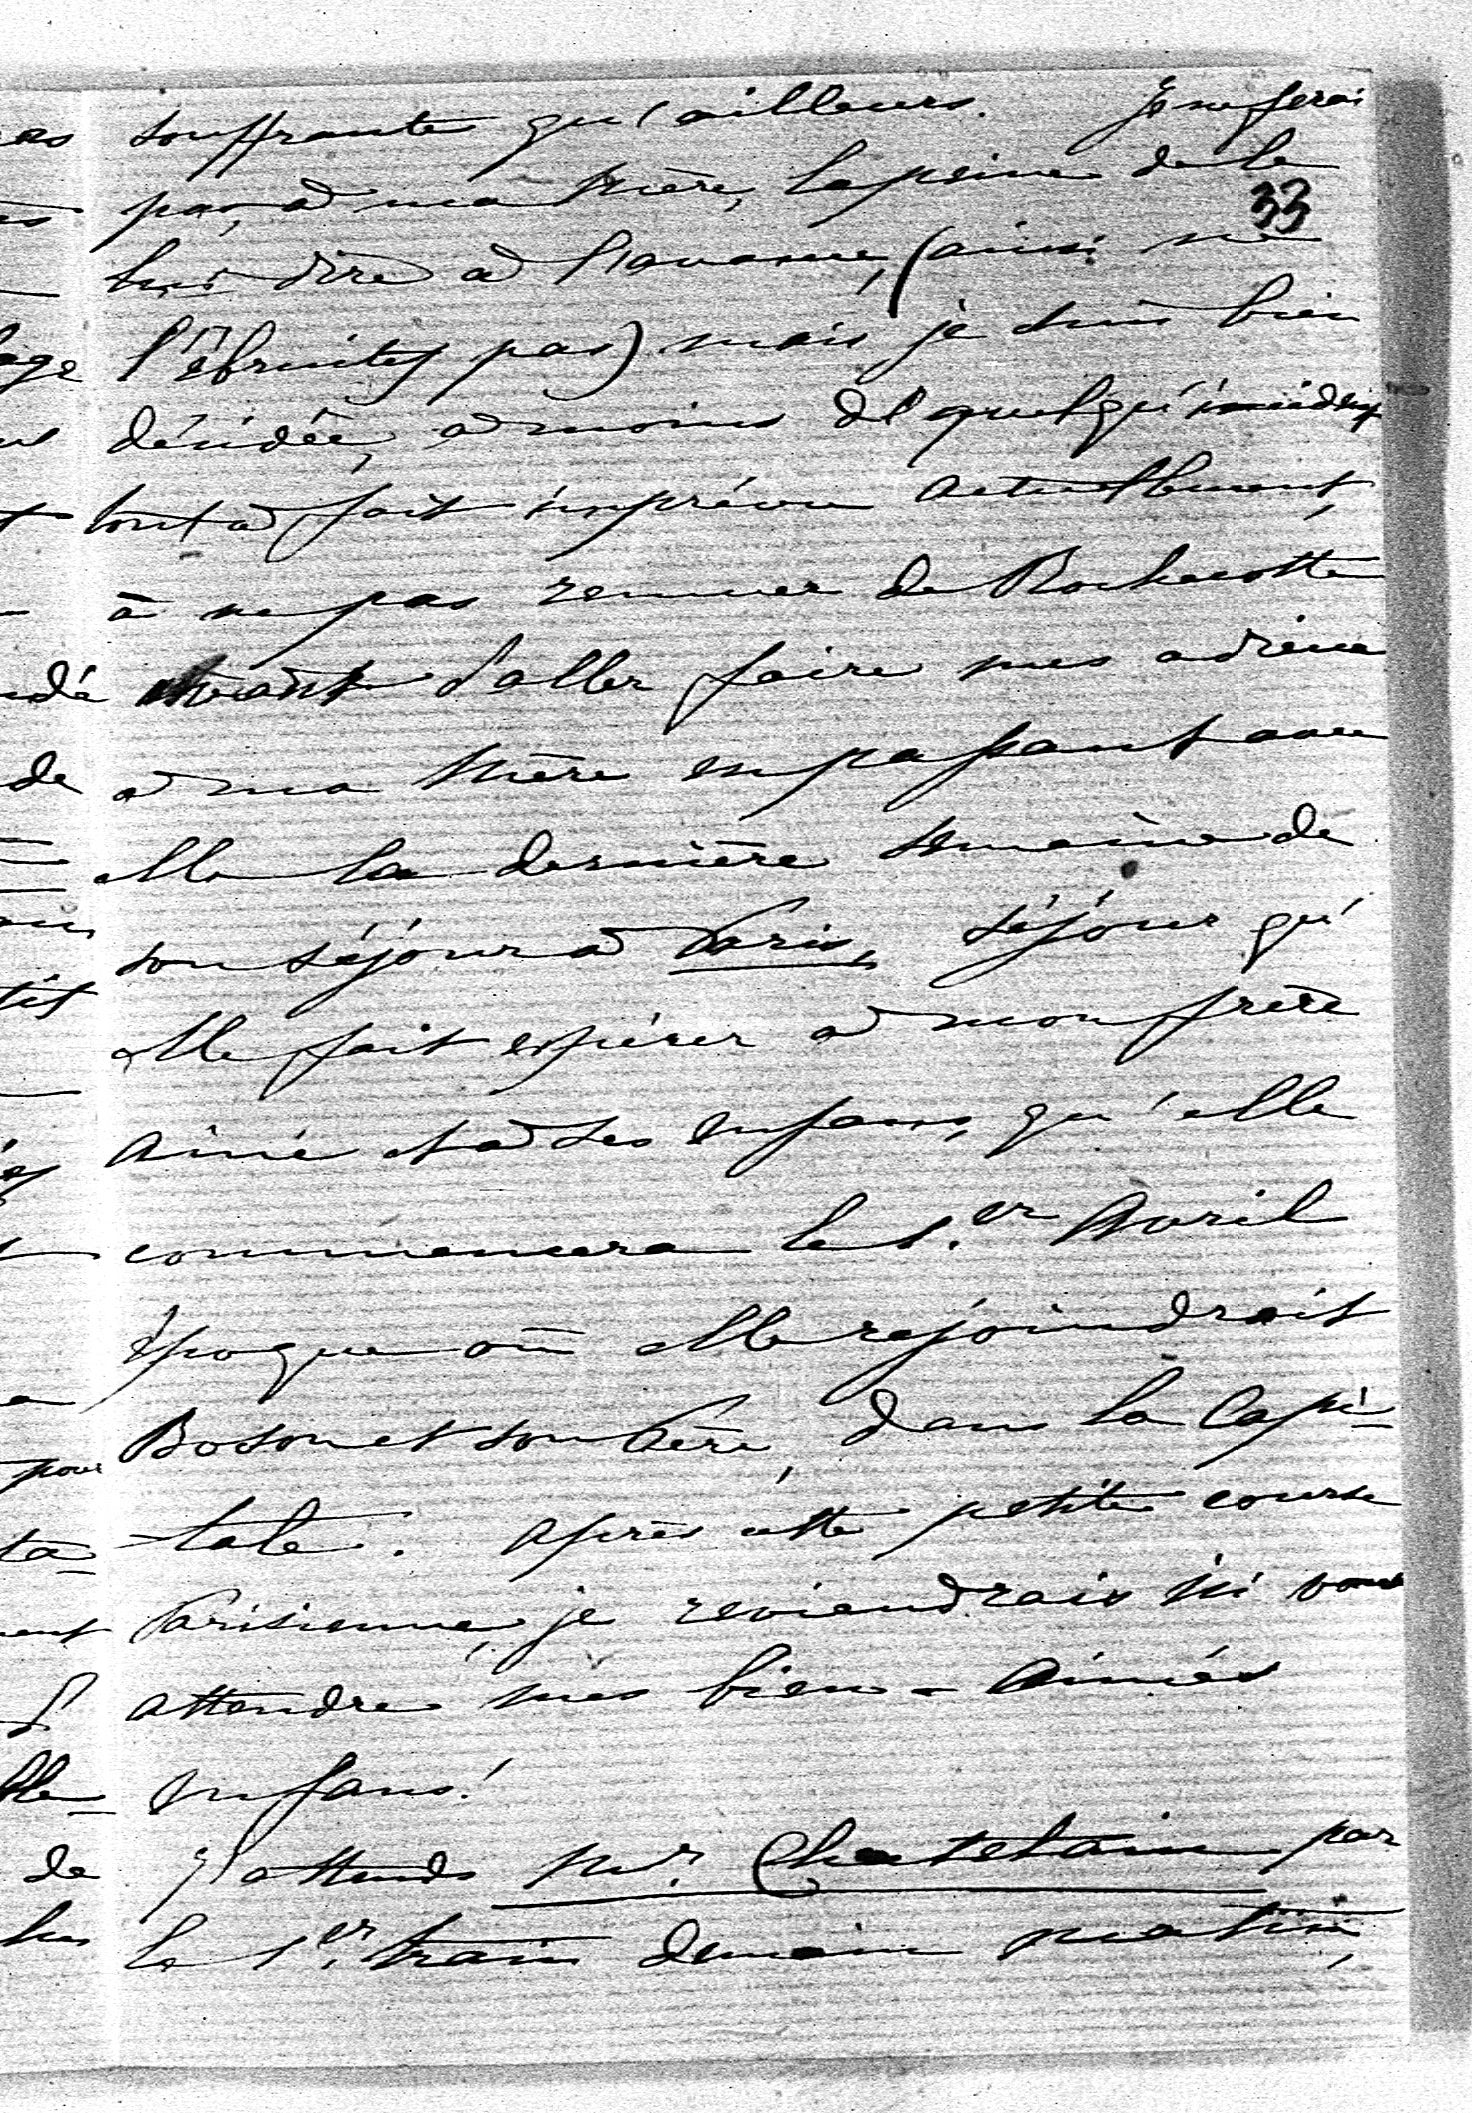 souffrante qu'ailleurs. Je ne ferai
pas, à ma Mère, la peine de le
33
lui dire à l'avance, (ainsi ne
l'ébruitez pas) mais je suis bien
décidée, à moins de quelqu'incident
tout à fait imprévu actuellement,
à ne pas remuer de Rochecotte
avant d'aller faire mes adieux
à ma Mère en passant avec
elle la dernière semaine de
son séjour à Paris, séjour qu'
elle fait espérer à mon frère
aîné et à ses enfans, qu'elle
commencera le 1.er Avril
époque où elle rejoindrait
Boson et son Père, dans la Capi-
tale. Après cette petite course
Parisienne, je reviendrais ici vous
attendre mes bien-aimés
enfans!
J'attends Mr. Chatelain par
le 1.er train demain matin,